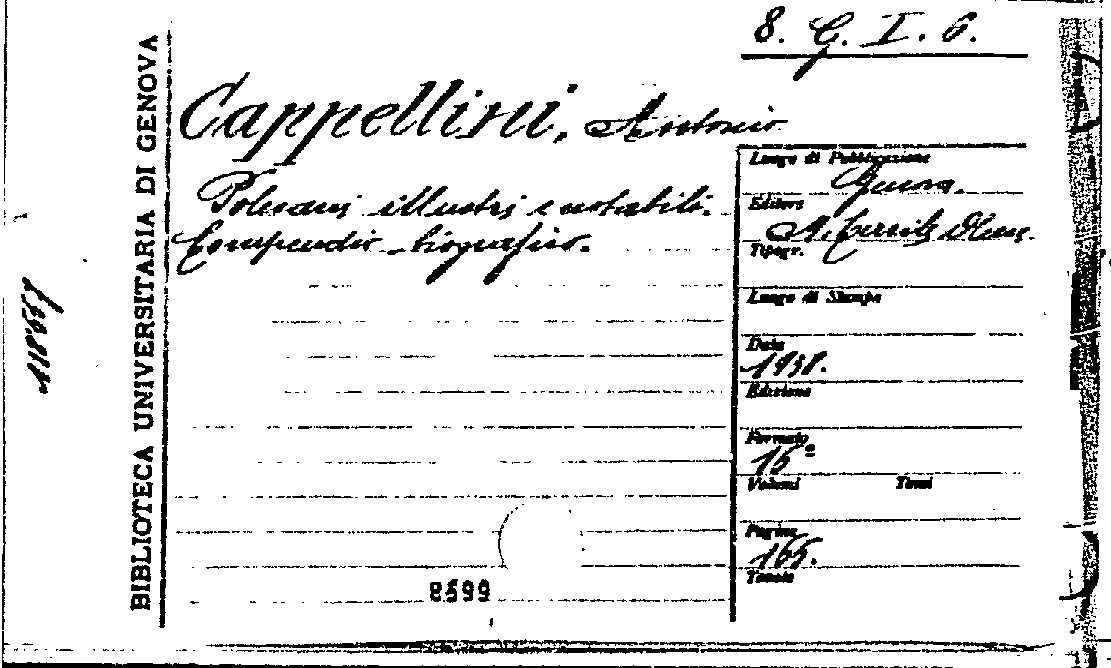 8. G. I. 6.
BIBLIOTECA UNIVERSITARIA DI GENOVA
Cappellini, Antonio
Polesani illustri e notabili.
Compendio biografico.
Luogo di Pubblicazione
Genova.
Editore
Tipogr.
Luogo di Stampa
Data
1938.
Edizione
Formato
16º
Volumi Tomi
Pagine
165.
Tavole
8599